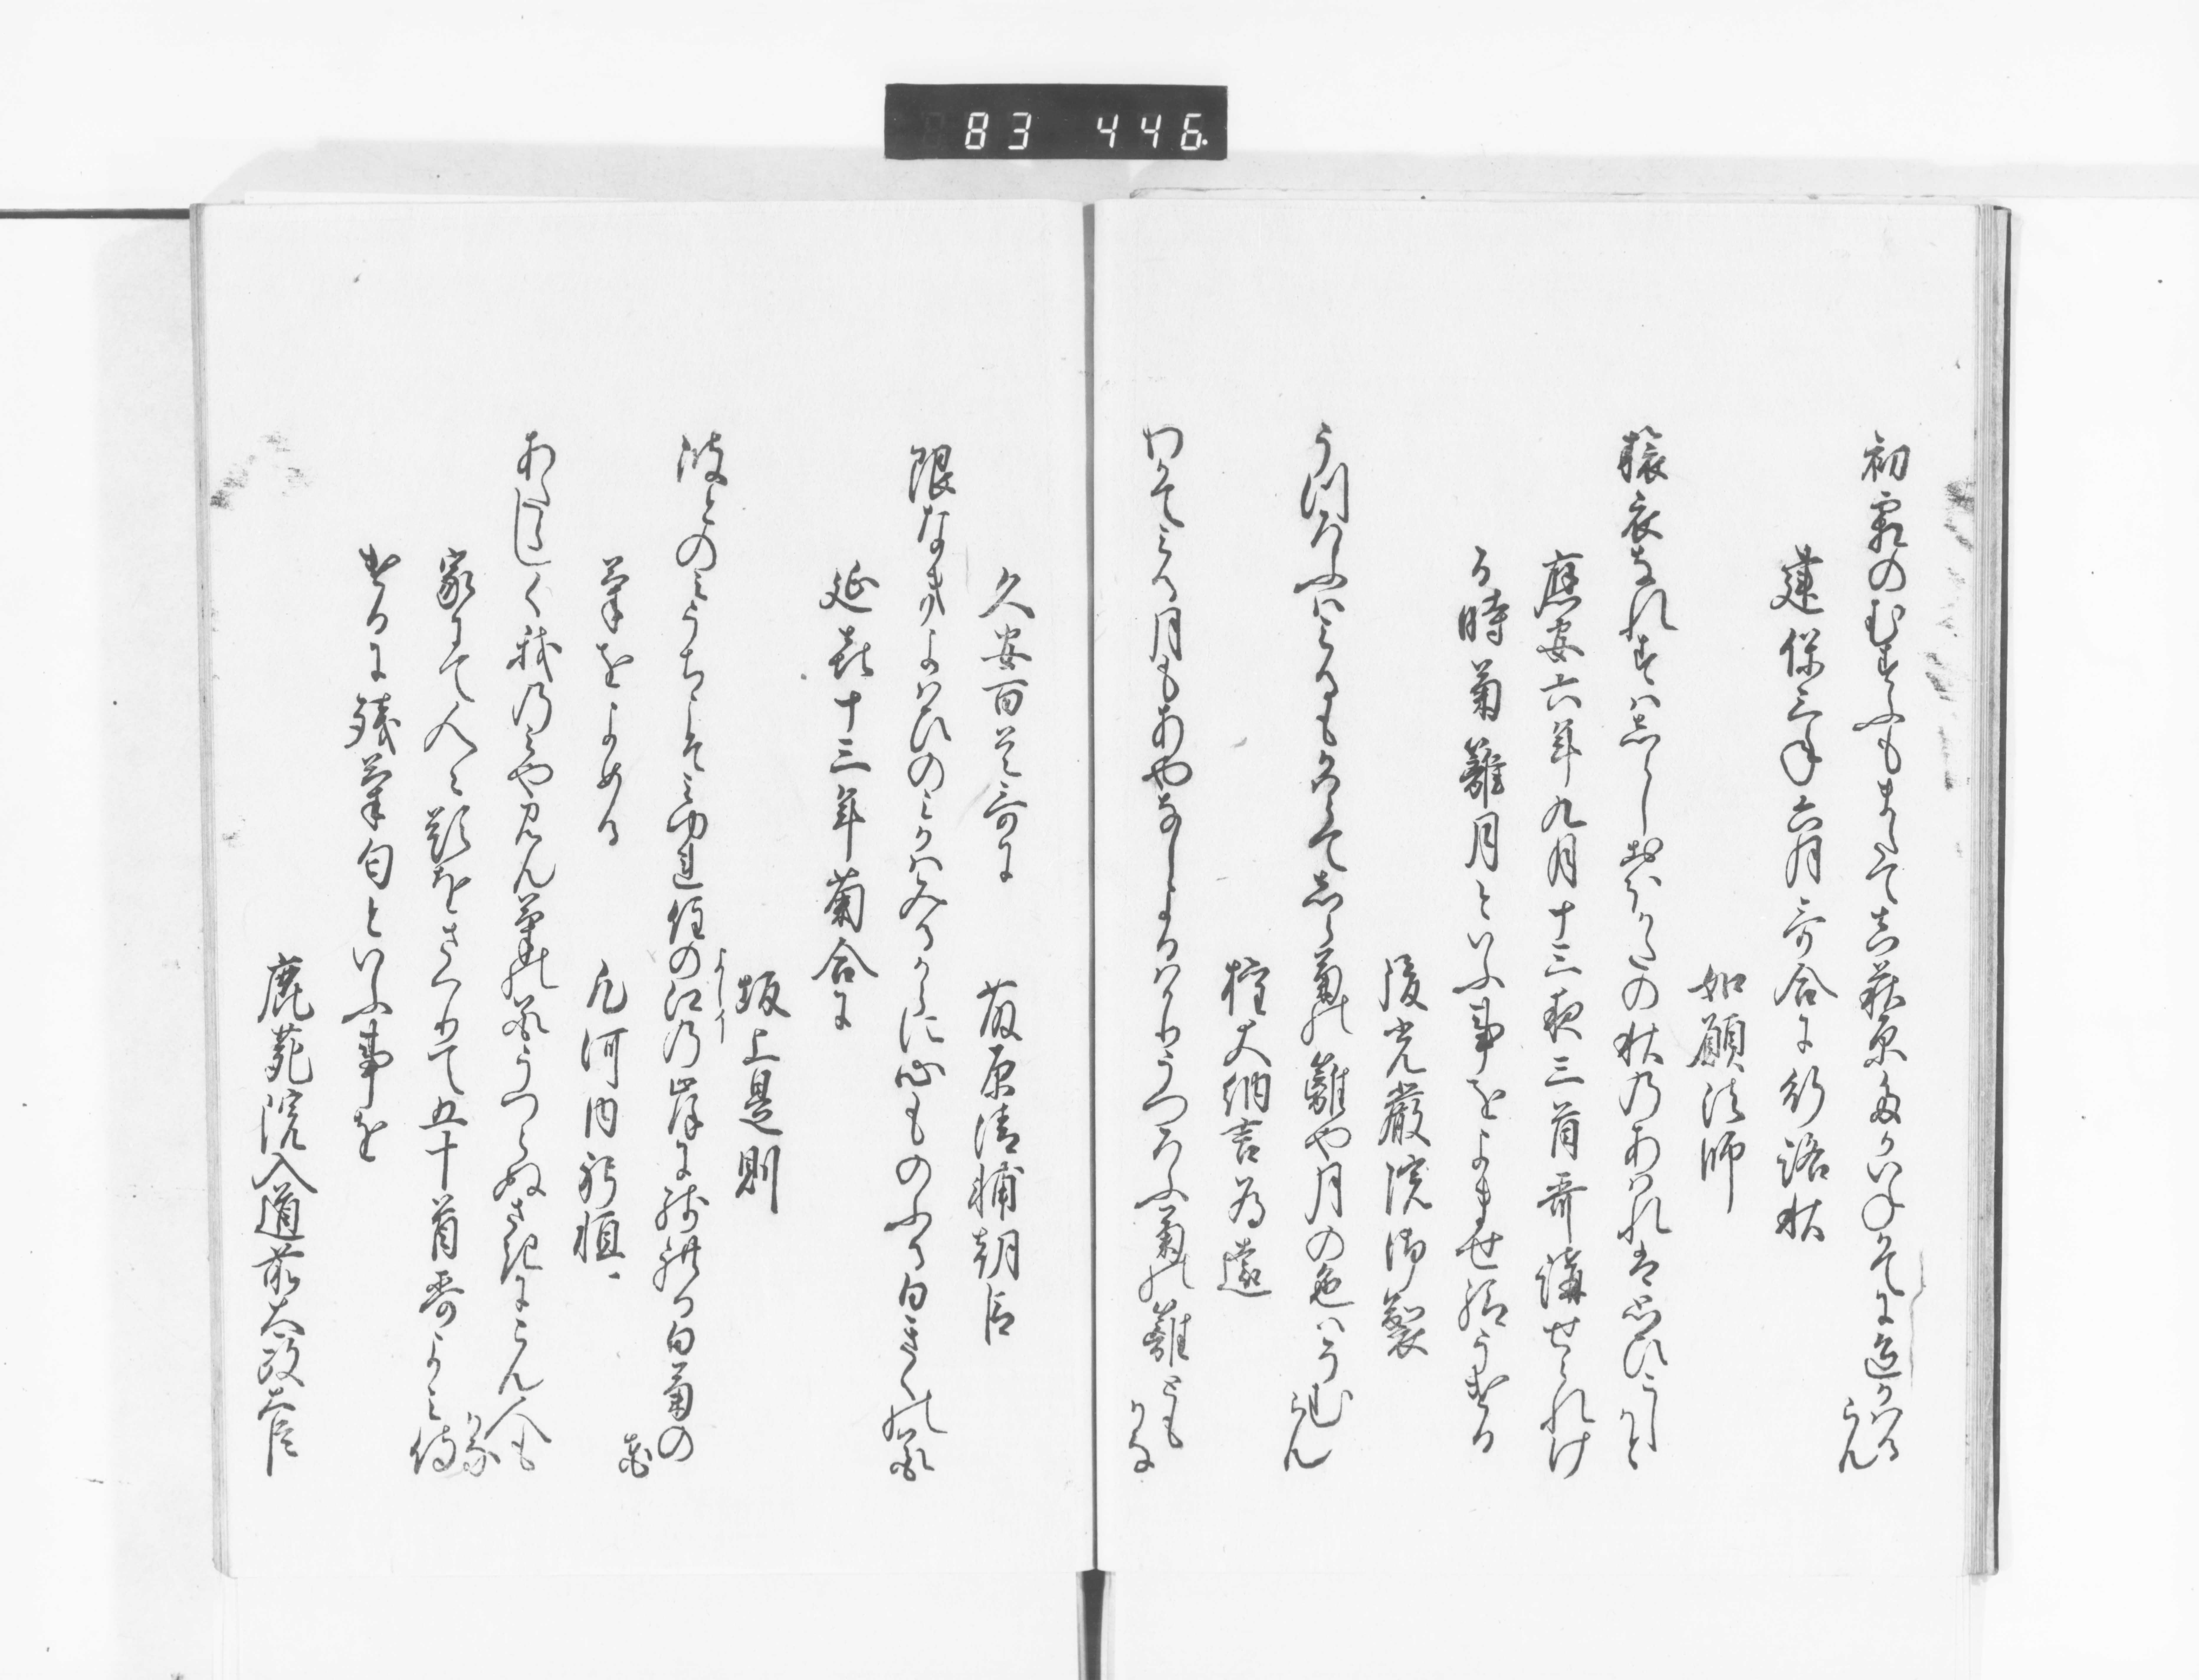 83 446
初霜のむすふもまたて真萩原
建保三年六月哥合に行路秋
如願法師
旅衣なれすはしらしおほかたの秋のあはれは思ひこしかと
應安六年九月十三夜三首哥講せられけ
る時菊籬月といふ事をよませ給うける
後光嚴院御製
うつろふはみるもかくて志ら菊の籬や月の色はそむらん
権大納言為遠
わきてみる月もあやなしよるはかりうつろふ菊の籬ともかな
久安百首哥に
藤原清輔朝臣
限なきよはひのみかはみるからに心ものふる白きくの花
延喜十三年菊合に
坂上是則
波とのみうちこそみゆれ住の江の岸に残れる白菊の花
よし イ
菊をよめる
凡河内躬恒
あたらしく我のみや見ん菊の花うつらぬさきにこん人もかな
家にて人々題をさくりて五十首哥よみ侍
けるに残菊匂といふ事を
鹿苑院入道前太政大臣